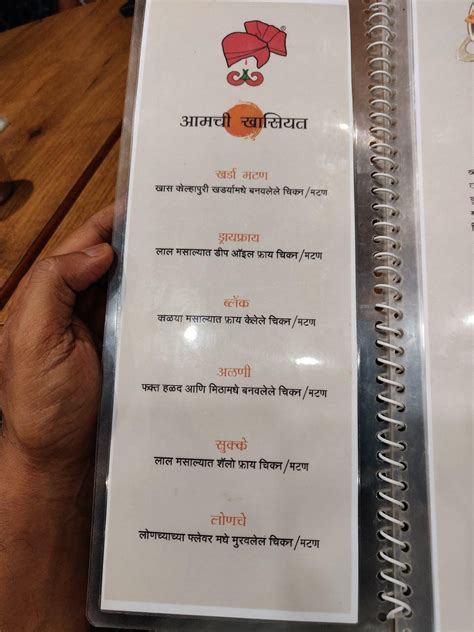 आमची खासियत
खर्डा मटण
खास कोल्हापुरी खडर्यामधे बनवलेले चिकन/मटण
ड्रायफ्राय
लाल मसाल्यात डीप ऑइल फ्राय चिकन/मटण
ब्लॅक
काळया मसाल्यात फ्राय केलेले चिकन/मटण
अळणी
फक्त हळद आणि मिठामधे बनवलेले चिकन/मटण
सुक्के
लाल मसाल्यात शॅलो फ्राय चिकन/मटण
लोणचे
लोणच्याच्या फ्लेवर मधे मुरवलेलं चिकन/मटण